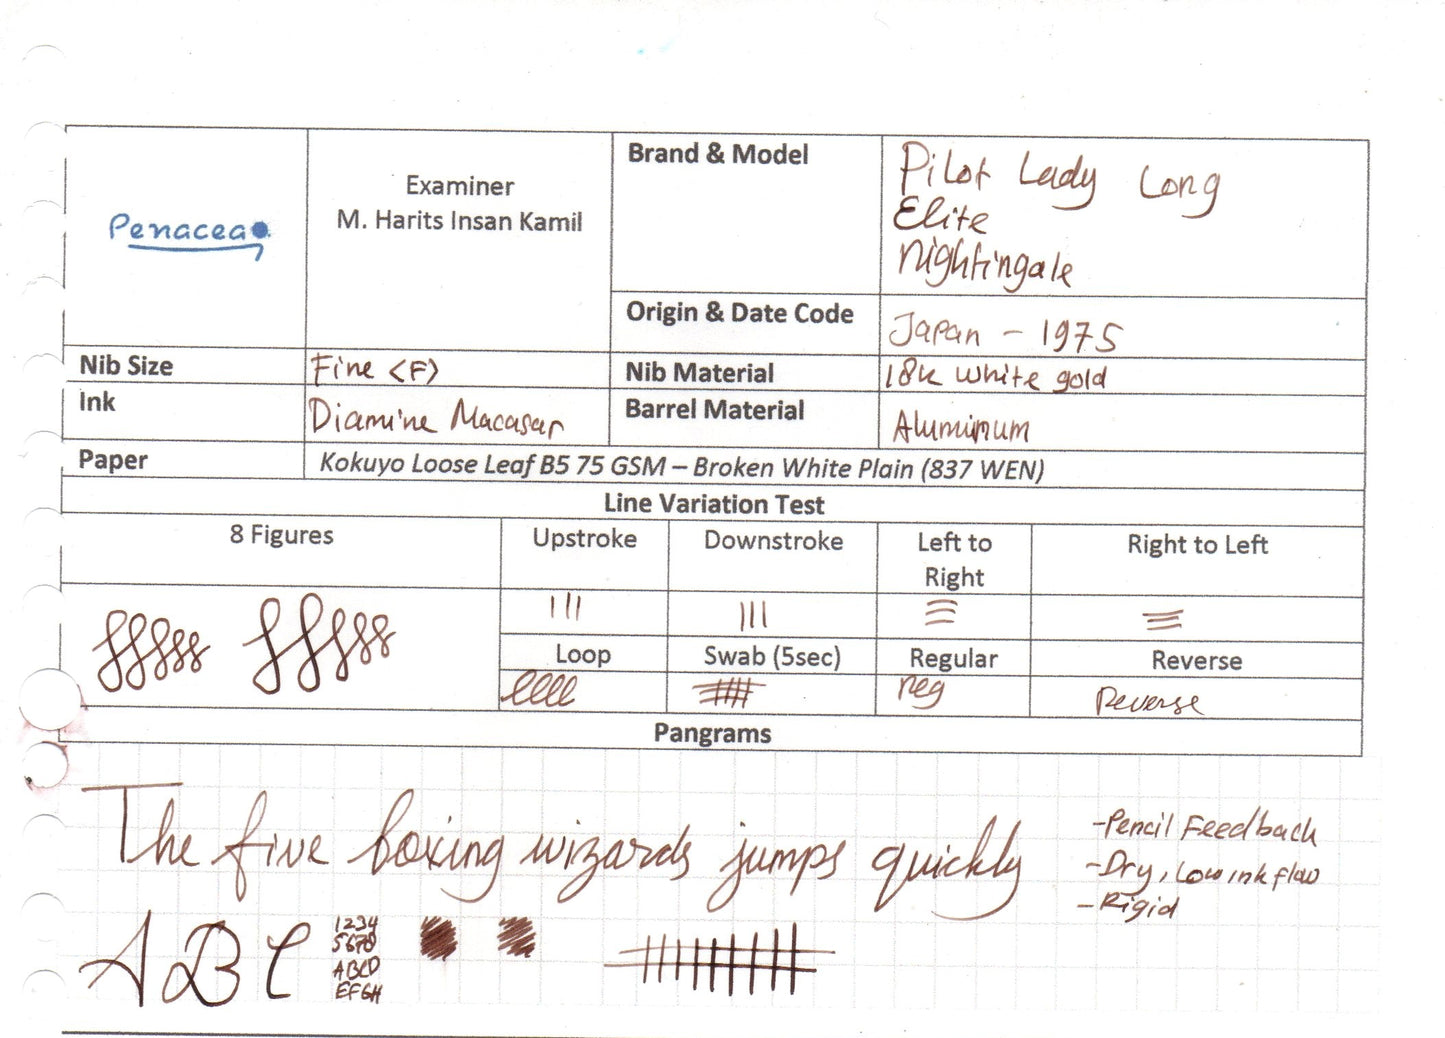 Penacea
Examiner
M. Harits Insan Kamil
Brand & Model
Pilot Lady Long
Elite
Nightingale
Origin & Date Code
Japan - 1975
Nib Size
Fine <F>
Nib Material
18k white gold
Ink
Diamine Macasar
Barrel Material
Aluminum
Paper
Kokuyo Loose Leaf B5 75 GSM – Broken White Plain (837 WEN)
Line Variation Test
8 Figures
Upstroke
Downstroke
Left to
Right
Right to Left
Loop
Swab (5sec)
Regular
Reverse
Reg
Reverse
Pangrams
The five boxing wizards jumps quickly
-Pencil Feedback
-Dry, Low ink flow
-Rigid
A B C
1234
5678
ABCD
EFGH